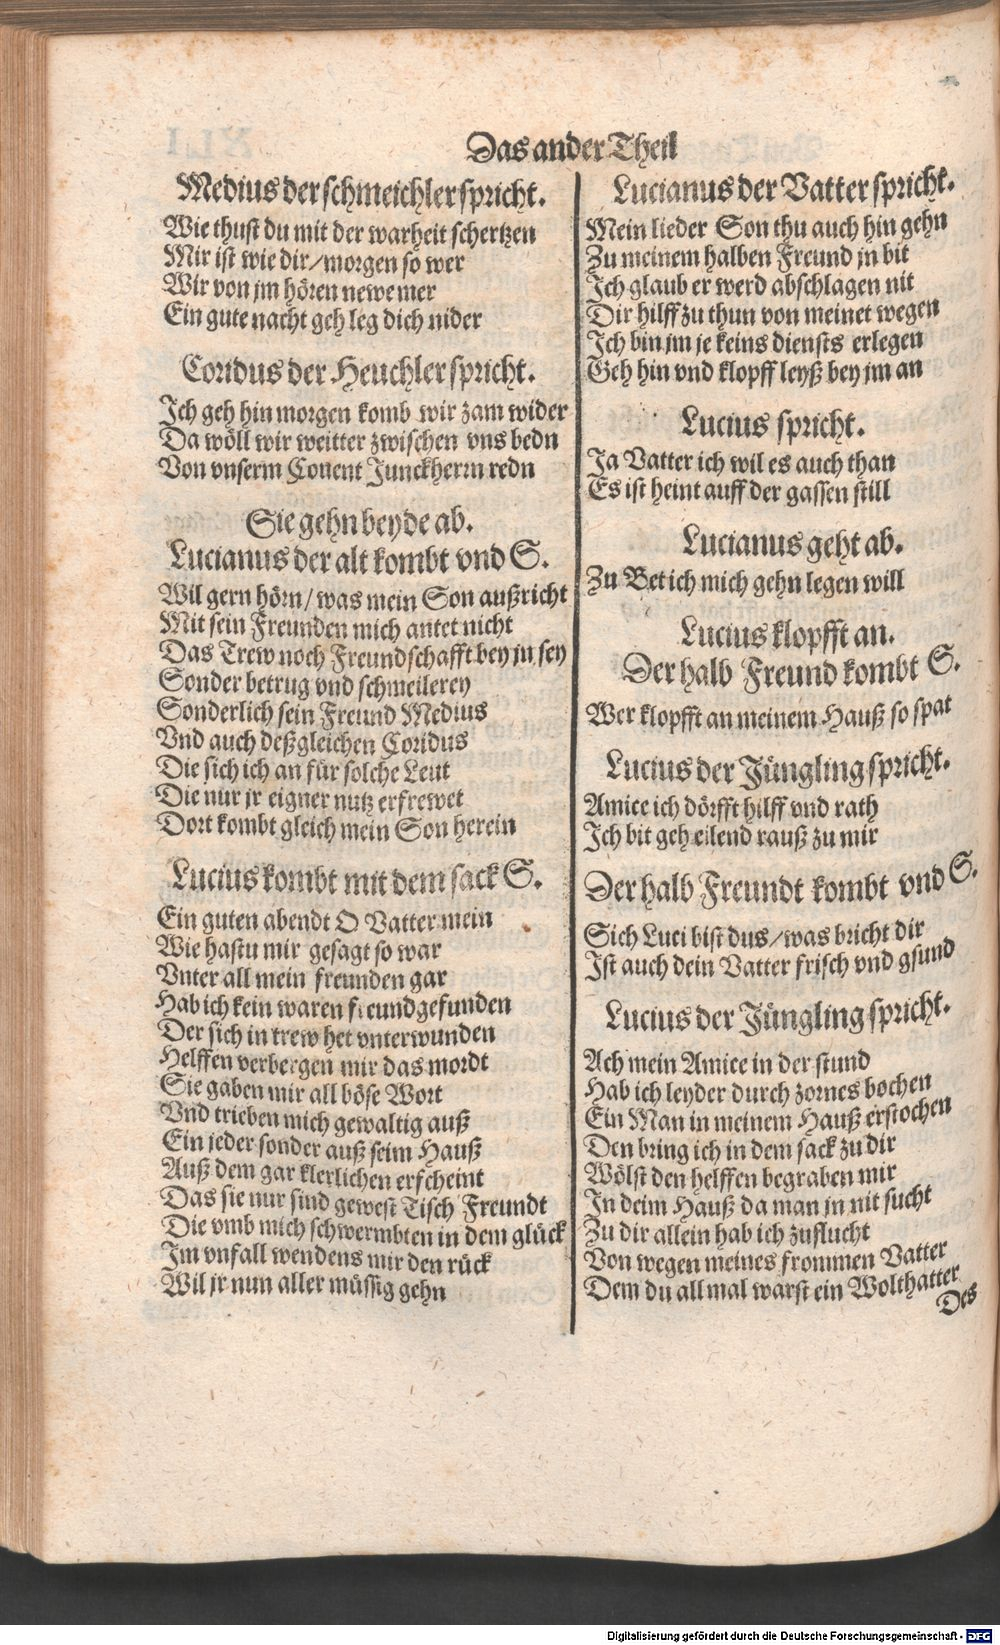 Das ander Theil
Medius der schmeichler spricht.
Wie thust du mit der warheit schertzen
Mir ist wie dir/morgen so wer
Wir von jm hören newe mer
Ein gute nacht geh leg dich nider
Coridus der Heuchler spricht.
Ich geh hin morgen komb wir zam wider
Da wöll wir weitter zwischen vns bedn
Von vnserm Conent Junckherrn redn
Sie gehn beyde ab.
Lucianus der alt kombt vnd S.
Wil gern hörn/ was mein Son außricht
Mit sein Freunden mich antet nicht
Das Trew noch Freundschafft bey jn sey
Sonder betrug vnd schmeilerey
Sonderlich sein Freund Medius
Vnd auch deßgleichen Coridus
Die sich ich an für solche Leut
Die nur jr eigner nutz erfrewet
Dort kombt gleich mein Son herein
Lucius kombt mit dem sack S.
Ein guten abendt O Vatter mein
Wie hastu mir gesagt so war
Vnter all mein freunden gar
Hab ich kein waren freund gefunden
Der sich in trew het vnterwunden
Helffen verbergen mir das mordt
Sie gaben mir all böse Wort
Vnd trieben mich gewaltig auß
Ein jeder sonder auß seim Hauß
Auß dem gar klerlichen erscheint
Das sie nur sind gewest Tisch Freundt
Die vmb mich schwermbten in dem glück
Im vnfall wendens mir den rück
Wil jr nun aller müssig gehn
Lucianus der Vatter spricht.
Mein lieder Son thu auch hin gehn
Zu meinem halben Freund jn bit
Ich glaub er werd abschlagen nit
Dir hilff zu thun von meinet wegen
Ich bin jm je keins diensts erlegen
Geh hin vnd klopff leyß bey jm an
Lucius spricht.
Ja Vatter ich wil es auch than
Es ist heint auff der gassen still
Lucianus geht ab.
Zu Bet ich mich gehn legen will
Lucius klopfft an.
Der halb Freund kombt S.
Wer klopfft an meinem Hauß so spat
Lucius der Jüngling spricht.
Amice ich dörfft hilff vnd rath
Ich bit geh eilend rauß zu mir
Der halb Freundt kombt vnd S.
Sich Luci bist dus/was bricht dir
Ist auch dein Vatter frisch vnd gsund
Lucius der Jüngling spricht.
Ach mein Amice in der stund
Hab ich leyder durch zornes bochen
Ein Man in meinem Hauß erstochen
Den bring ich in dem sack zu dir
Wölst den helffen begraben mir
In deim Hauß da man jn nit sucht
Zu dir allein hab ich zuflucht
Von wegen meines frommen Vatter
Dem du all mal warst ein Wolthatter
Des
Digitalisierung gefördert durch die Deutsche Forschungsgemeinschaft - DFG